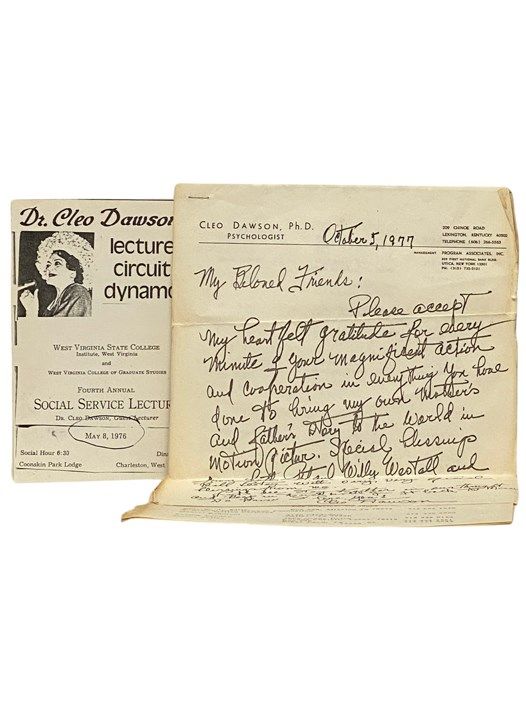 Dr. Cleo Dawson
lecture
circuit
dynamo
WEST VIRGINIA STATE COLLEGE
Institute, West Virginia
and
WEST VIRGINIA COLLEGE OF GRADUATE STUDIES
FOURTH ANNUAL
SOCIAL SERVICE LECTUR
DR. CLEO DAWSON, Guest Lecturer
MAY 8, 1976
Social Hour 6:30
Din
Coonskin Park Lodge
Charleston, West
CLEO DAWSON, Ph.D.
PSYCHOLOGIST
October 5, 1977
LEXINGTON, KENTUCKY
TELEPHONE (606)
MANAGEMENT
PROGRAM ASSOCIATES, INC.
UTICA, NEW YORK
My Beloved Friends:
Please accept
my heartfelt gratitude for every
minute of your magnificent action
and cooperation in everything you have
done to bring my own Mother's
and Father's story to the world in
Motion Picture. Special blessings
Willy Westall and